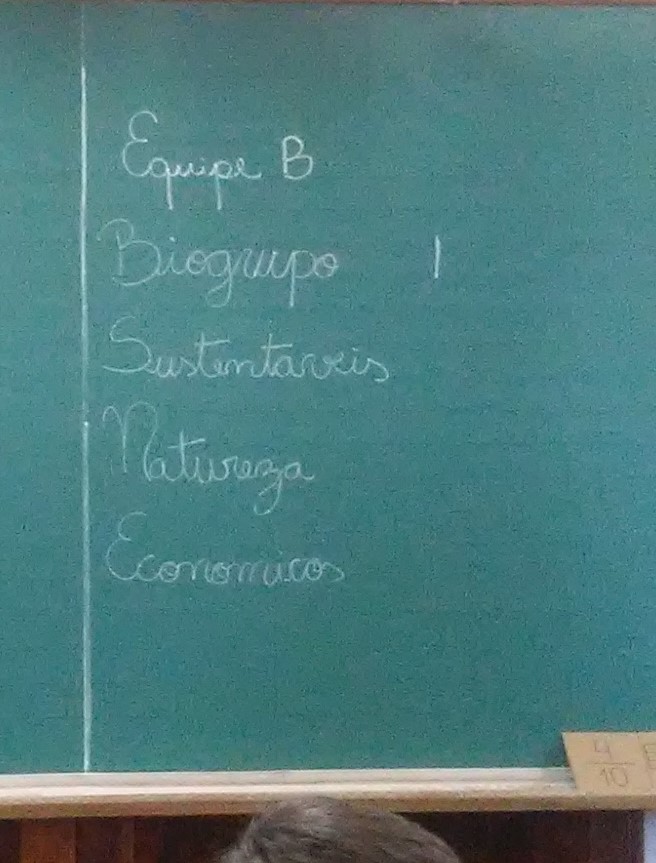 Equipe B
Biogrupo 1
Sustentaveis
Natureza
Economicos
4
10